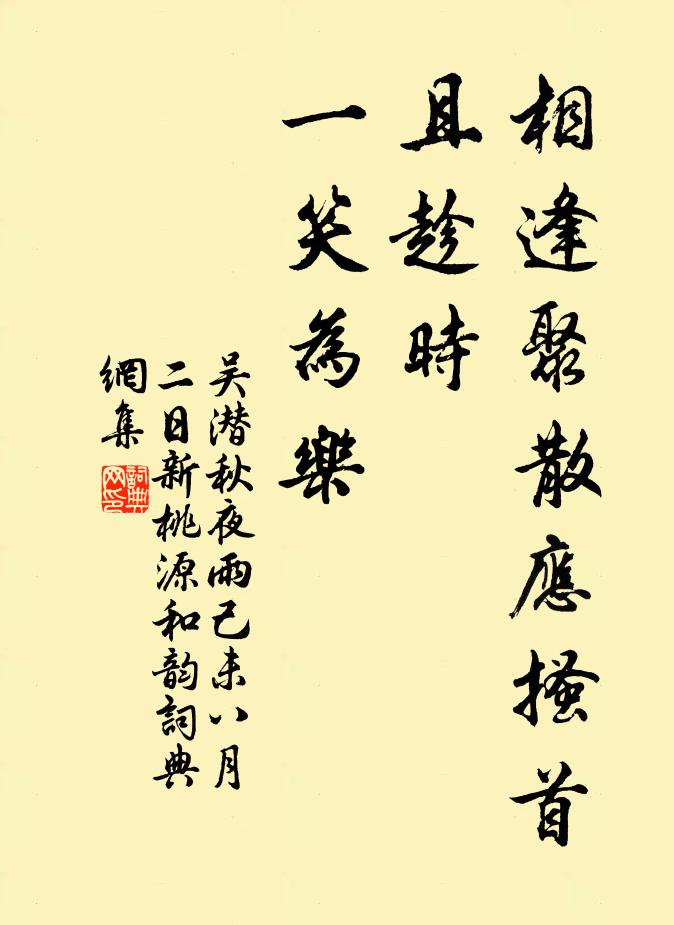 相逢聚散應搔首
且趁時
一笑為樂
吴潜秋夜雨己未八月
二日新桃源和韵詞典
網集
詞典網印